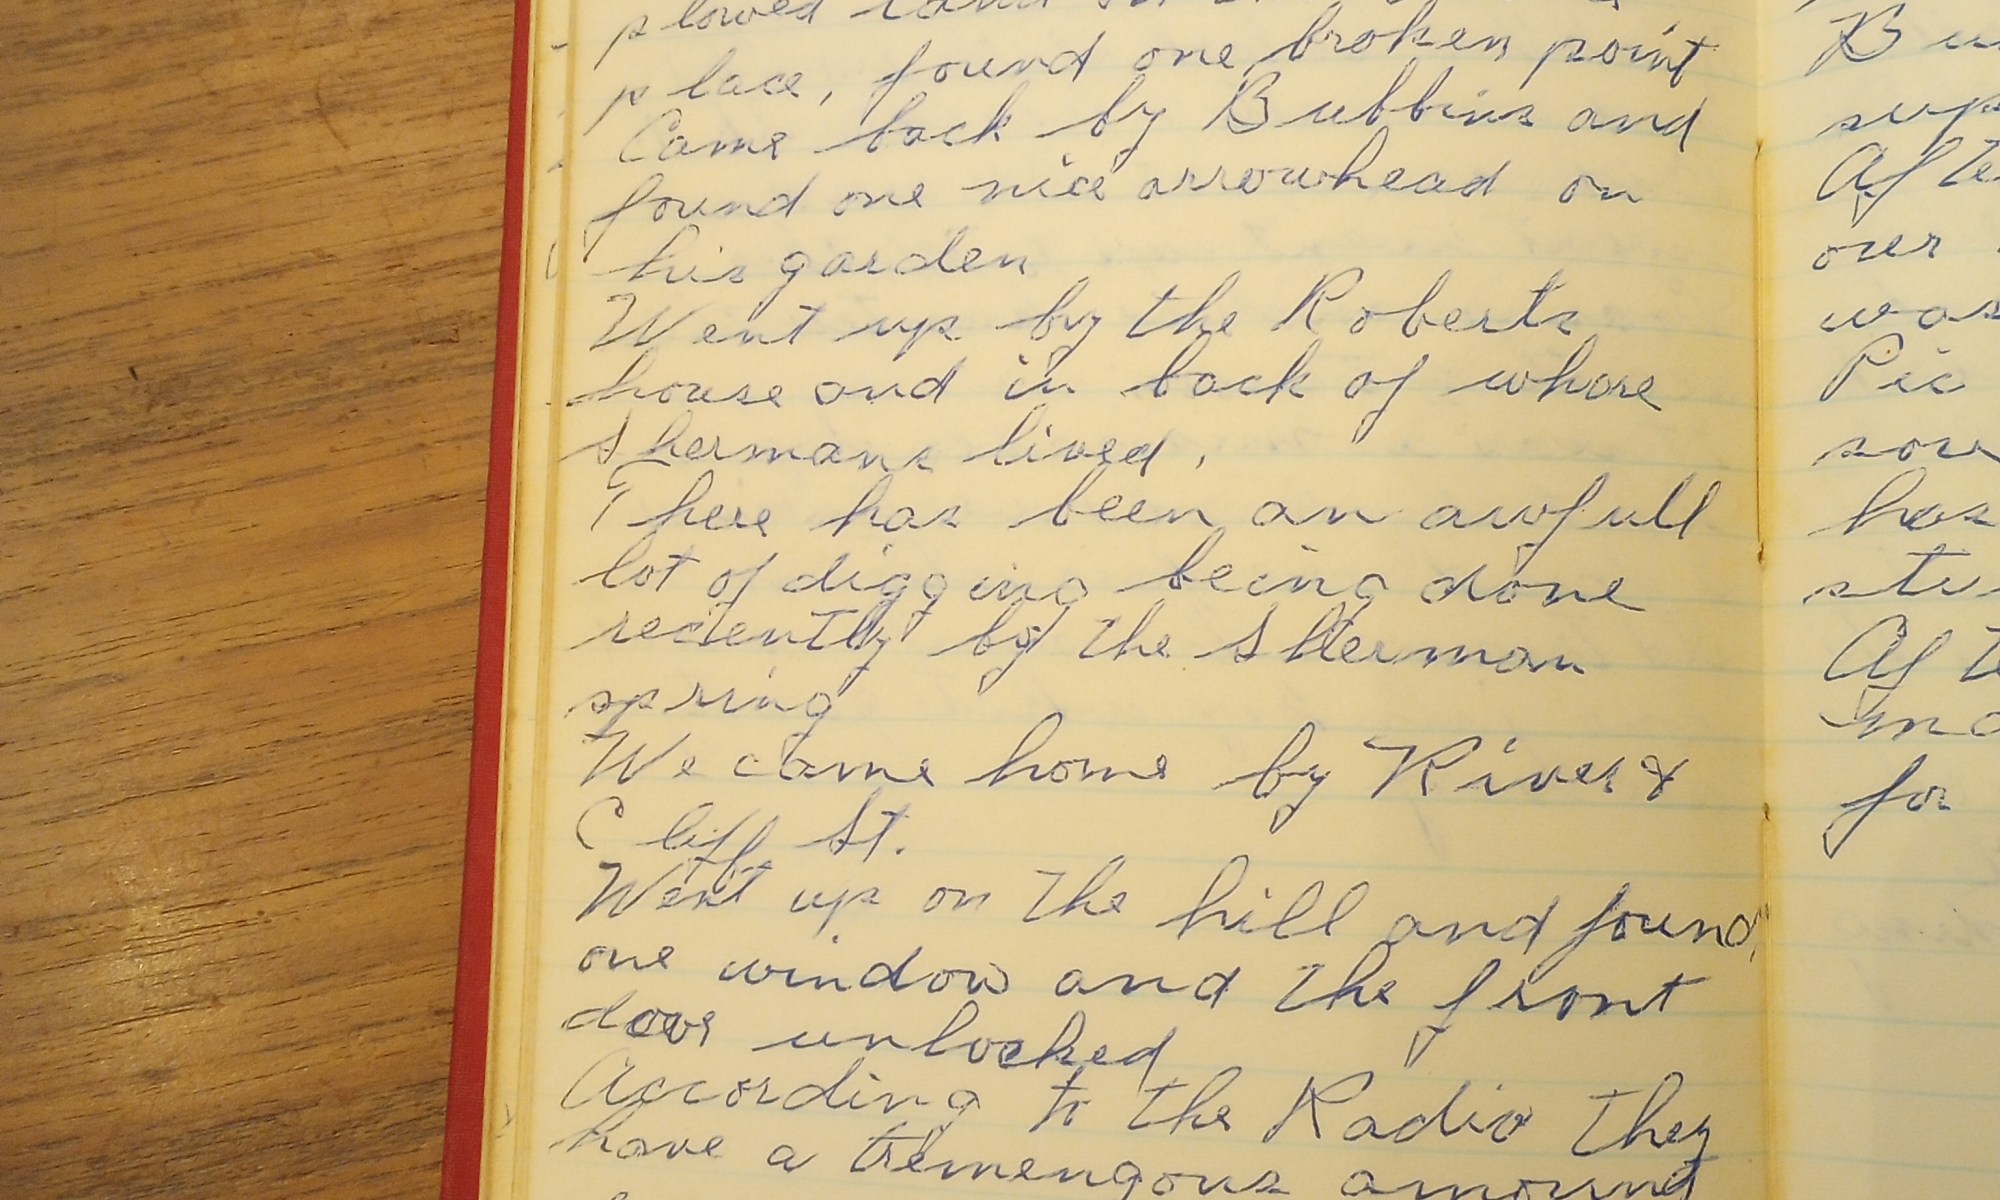 plowed land
place, found one broken point
Came back by Bubbins and
found one nice arrowhead on
his garden
Went up by the Roberts
house and in back of whare
Shermans lived.
There has been an awfull
lot of digging being done
reciently by the Sherman
spring
We came home by River &
Cliff St.
Went up on the hill and found
one window and the front
door unlocked
According to the Radio they
have a tremengous amound
B
sup
Afte
over
was
Pic
has
Afte
for